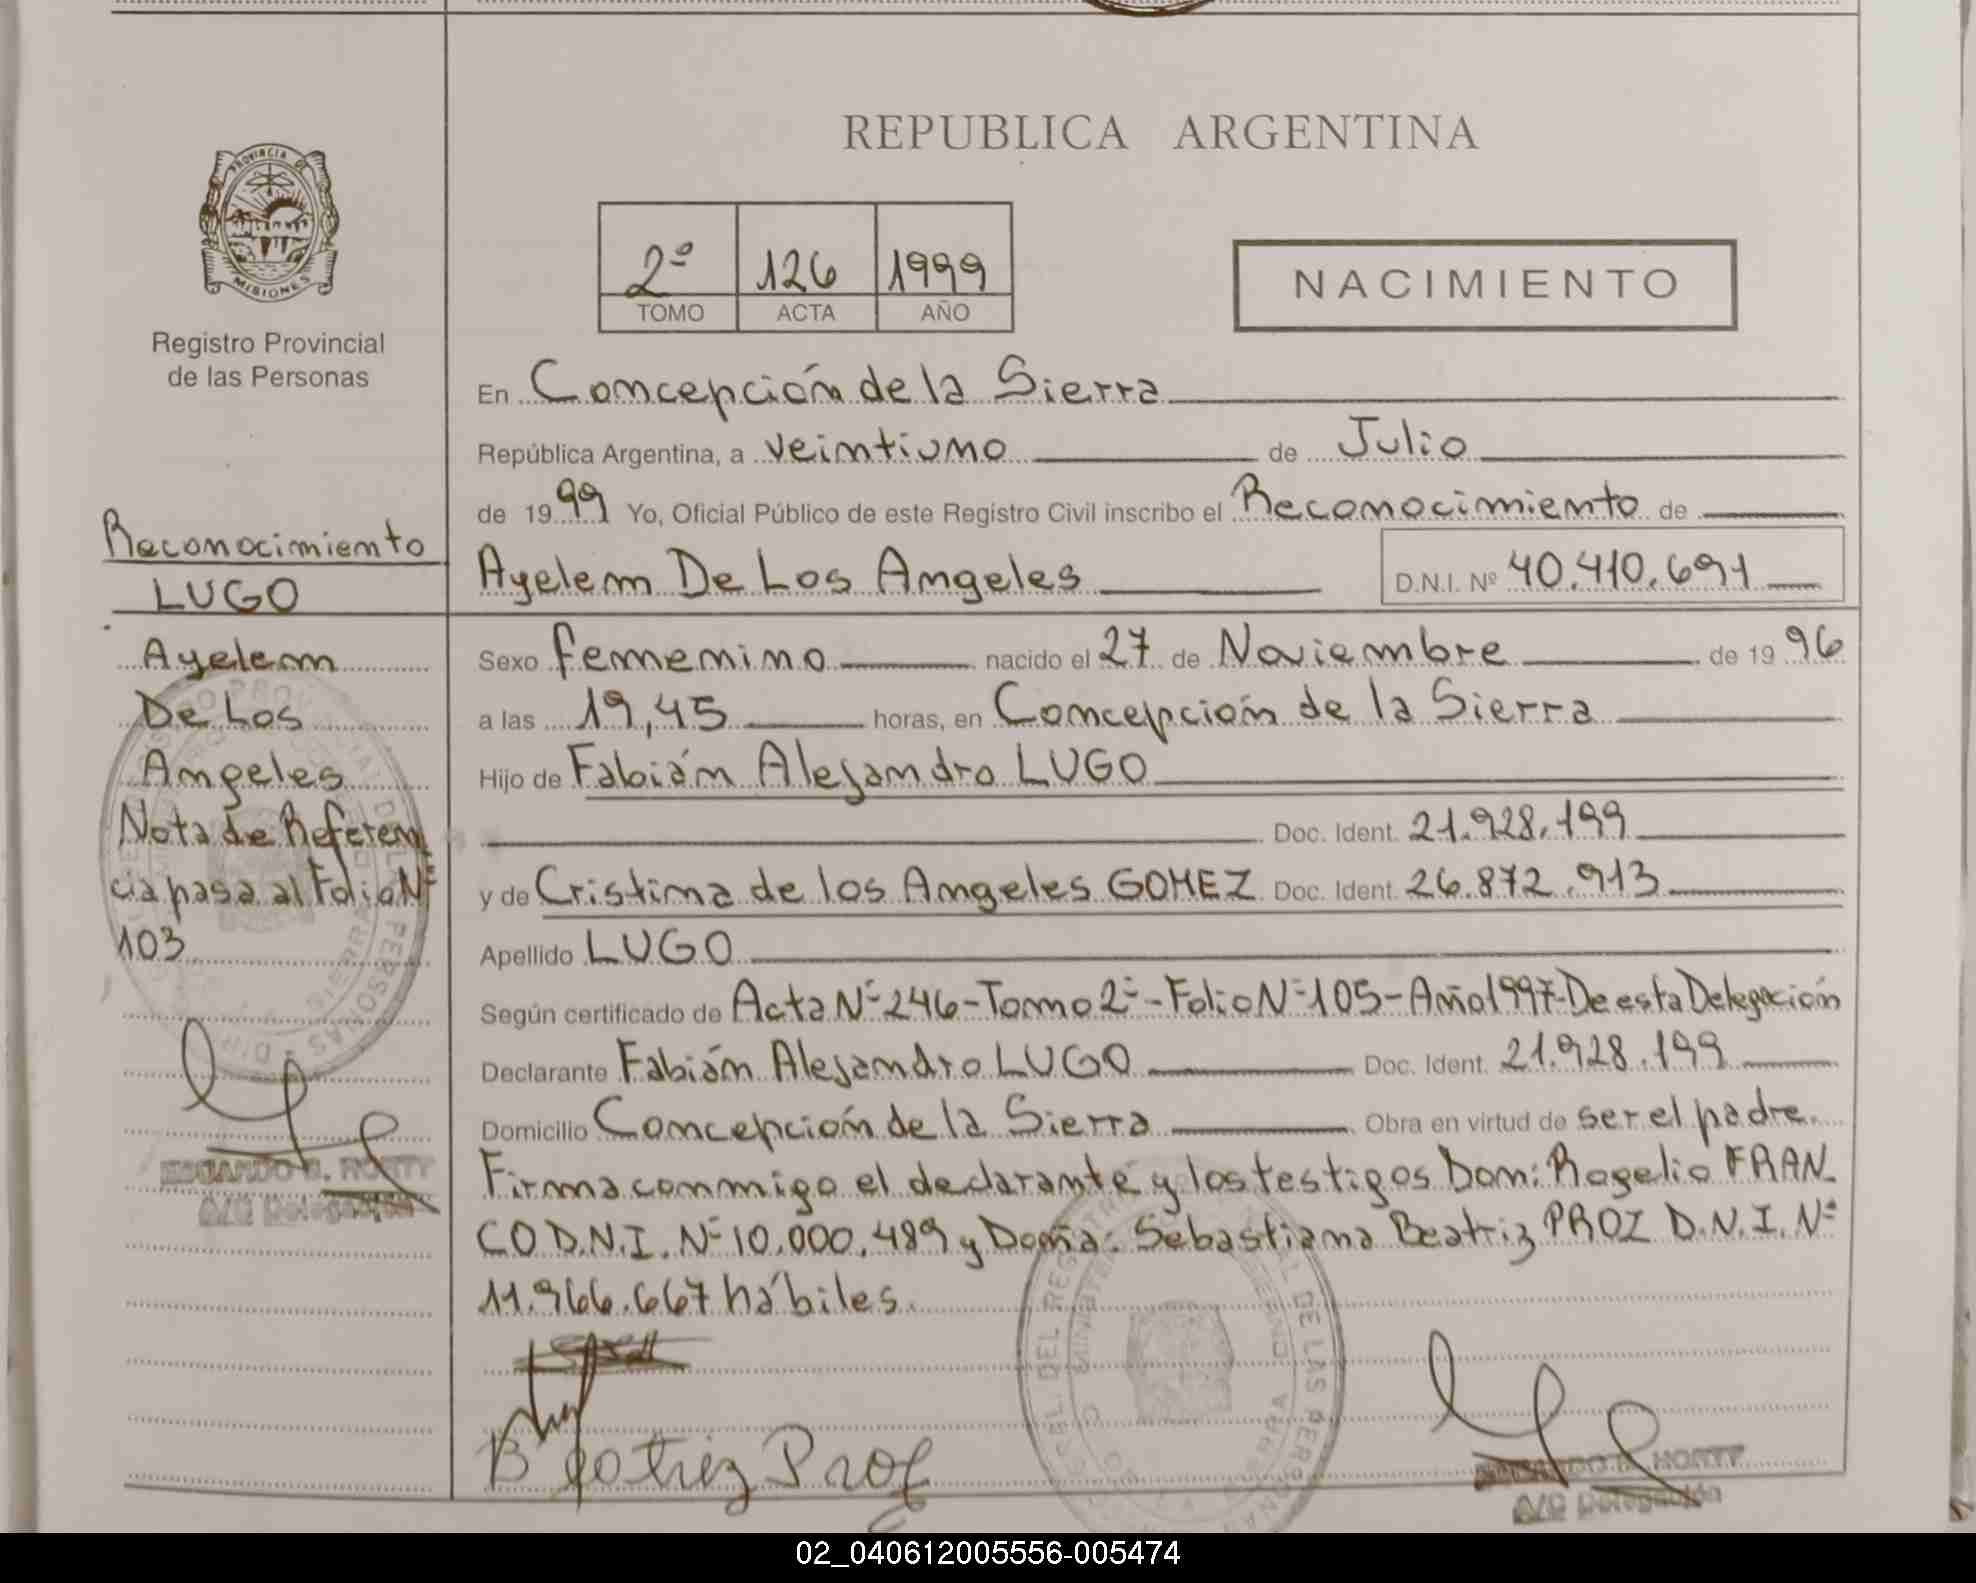 REPUBLICA ARGENTINA
PROVINCIA DE
MISIONES
Registro Provincial
de las Personas
2º 126 1999
TOMO ACTA AÑO
NACIMIENTO
En Concepción de la Sierra
República Argentina, a veintiuno de Julio
de 1999 Yo, Oficial Público de este Registro Civil inscribo el Reconocimiento de
Ayelem De Los Angeles D.N.I. Nº 40.410.691
Reconocimiento
LUGO
Ayelem
De Los
Angeles
Nota de Referen
cia pasa al Folio Nº
103
Sexo femenino nacido el 27 de Noviembre de 1996
a las 19,45 horas, en Concepción de la Sierra
Hijo de Fabián Alejandro LUGO
Doc. Ident. 21.928.199
y de Cristina de los Angeles GOMEZ Doc. Ident. 26.872.913
Apellido LUGO
Según certificado de Acta Nº 246-Tomo 2º-Folio Nº 105-Año 1997-De esta Delegación
Declarante Fabián Alejandro LUGO Doc. Ident. 21.928.199
Domicilio Concepción de la Sierra Obra en virtud de ser el padre.
Firma conmigo el declarante y los testigos Don: Rogelio FRAN
CO D.N.I. Nº 10.000.489 y Doña: Sebastiana Beatriz PROZ D.N.I. Nº
11.966.667 hábiles.
Beatriz Proz
A/C Delegación
A/C Delegación
02_040612005556-005474